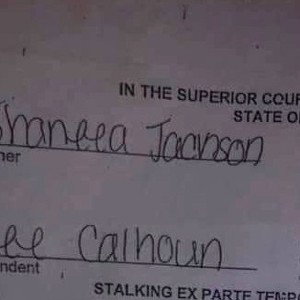 IN THE SUPERIOR COU
STATE O
haneea Jacnson
ner
ee Calhoun
ndent
STALKING EX PARTE TEMP